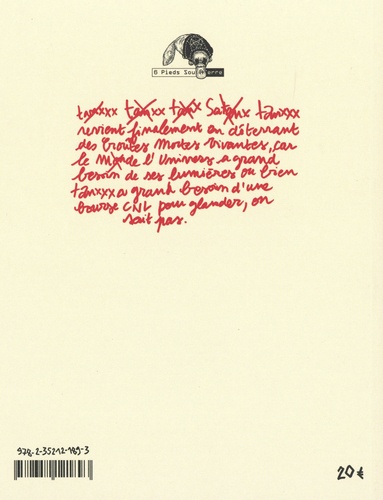 6 Pieds Sous Terre
tanxxx tanxx tanx Satanx tanxxx
revient finalement en déterrant
des Croûtes Mortes Vivantes, car
le Monde l'Univers a grand
besoin de ses lumières ou bien
tanxxx a grand besoin d'une
bourse CNL pour glander, on
sait pas.
978-2-35212-189-3
20 €